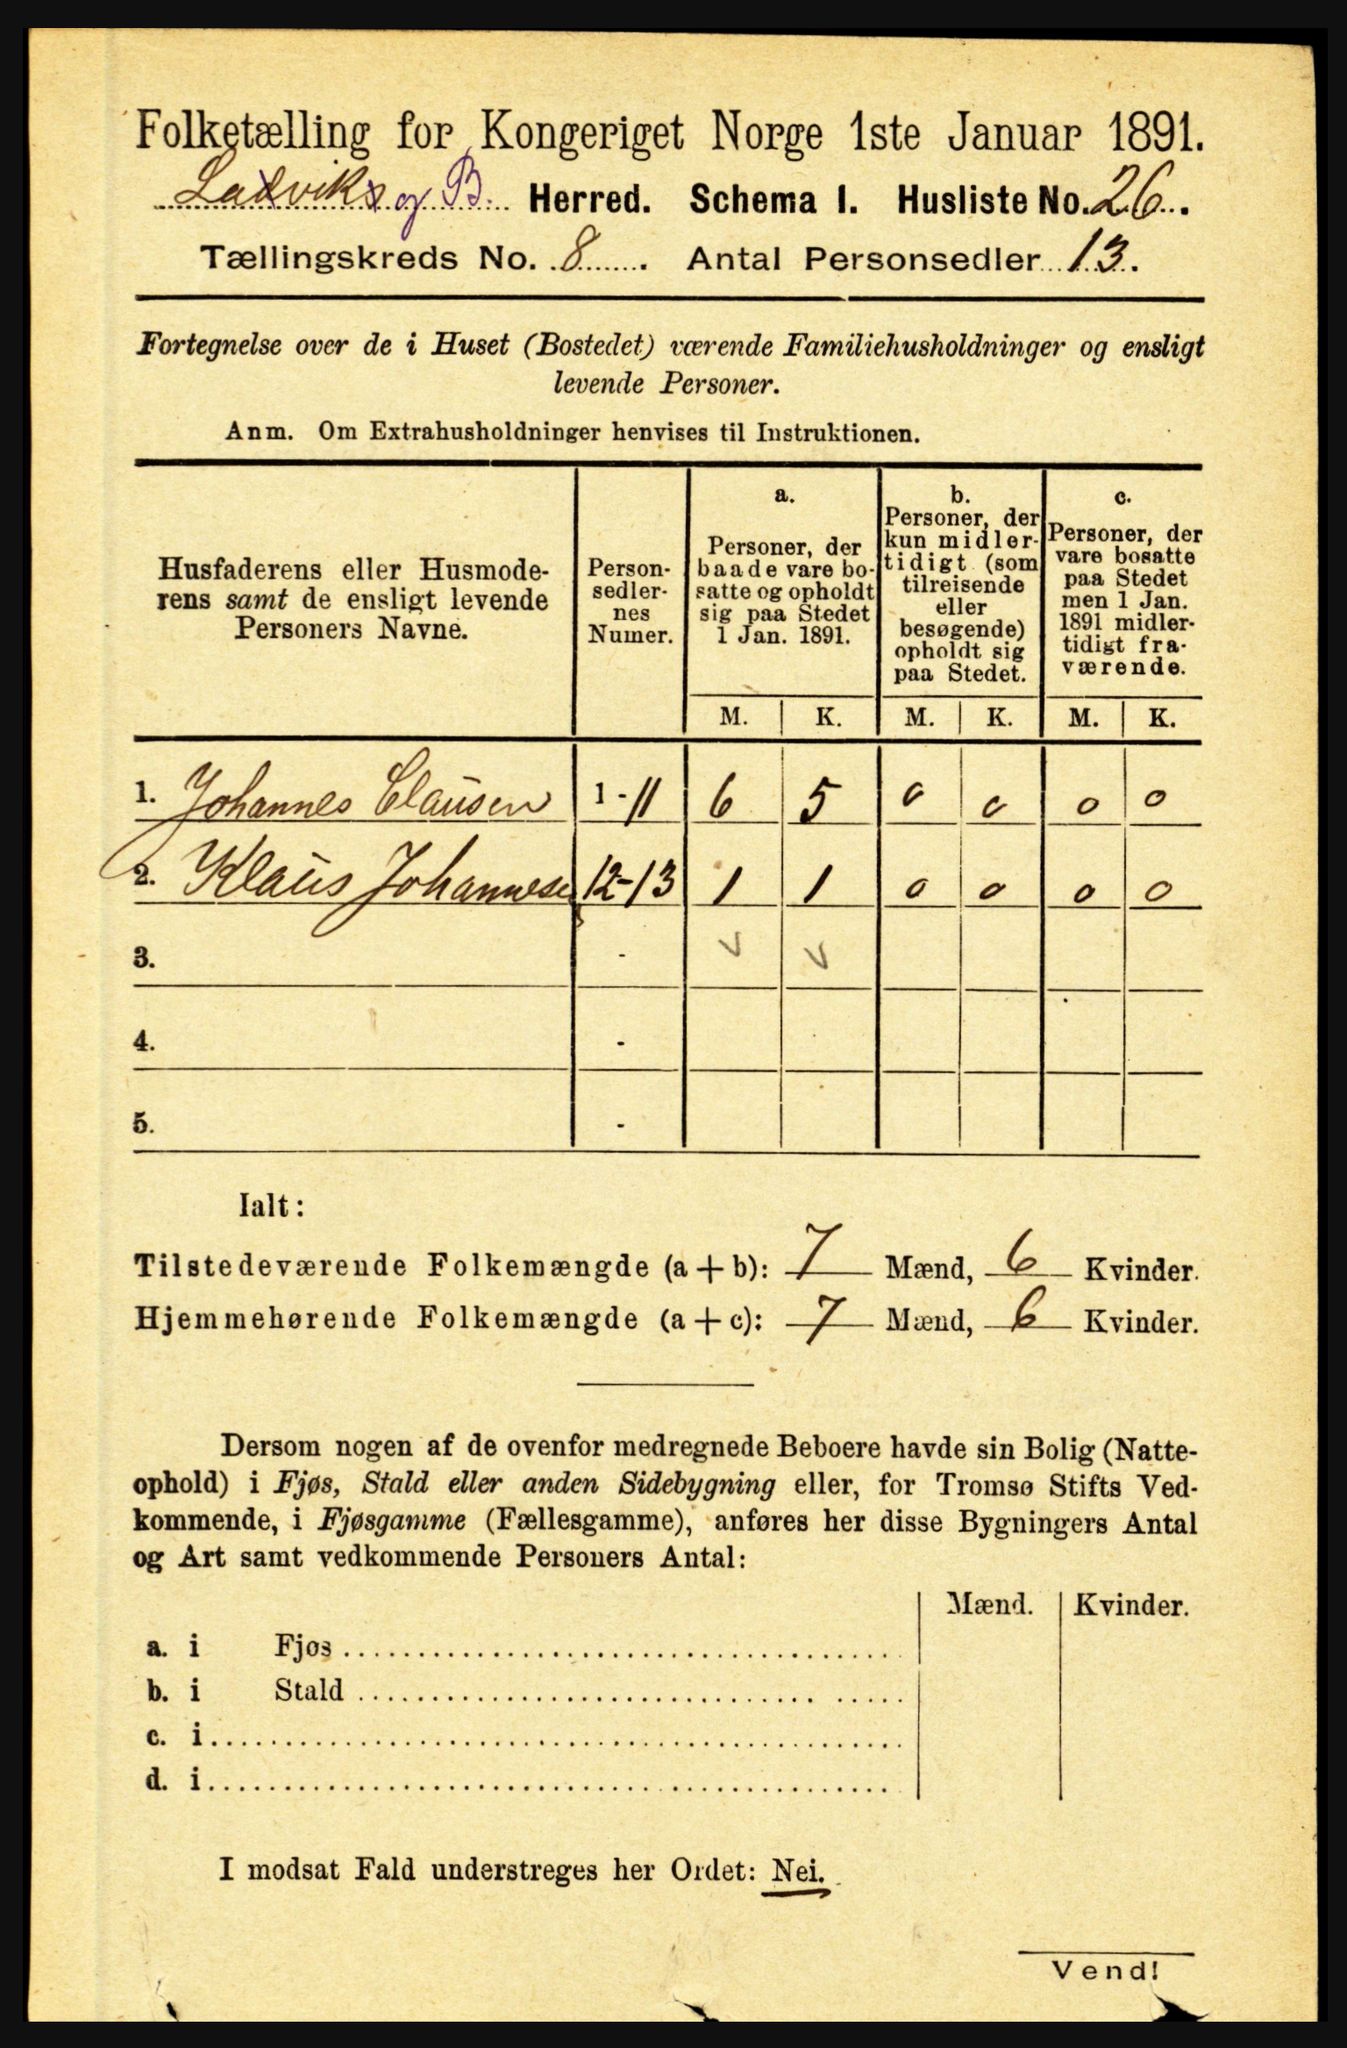 Folketælling for Kongeriget Norge 1ste Januar 1891.
Ladvik og B. Herred. Schema I. Husliste No. 26.
Tællingskreds No. 8. Antal Personsedler 13.
Fortegnelse over de i Huset (Bostedet) værende Familiehusholdninger og ensligt
levende Personer.
Anm. Om Extrahusholdninger henvises til Instruktionen.
Husfaderens eller Husmode-
rens samt de ensligt levende
Personers Navne.
Person-
sedler-
nes
Numer.
a.
Personer, der
baade vare bo-
satte og opholdt
sig paa Stedet
1 Jan. 1891.
b.
Personer, der
kun midler-
tidigt (som
tilreisende
eller
besøgende)
opholdt sig
paa Stedet.
c.
Personer, der
vare bosatte
paa Stedet
men 1 Jan.
1891 midler-
tidigt fra-
værende.
M. K. M. K. M. K.
1. Johannes Clausen 1-11 6 5 0 0 0 0
2. Klaus Johannesen 12-13 1 1 0 0 0 0
3. -
4. -
5. -
Ialt:
Tilstedeværende Folkemængde (a+b): 7 Mænd, 6 Kvinder.
Hjemmehørende Folkemængde (a+c): 7 Mænd, 6 Kvinder.
Dersom nogen af de ovenfor medregnede Beboere havde sin Bolig (Natte-
ophold) i Fjøs, Stald eller anden Sidebygning eller, for Tromsø Stifts Ved-
kommende, i Fjøsgamme (Fællesgamme), anføres her disse Bygningers Antal
og Art samt vedkommende Personers Antal:
Mænd. Kvinder.
a. i Fjøs
b. i Stald
c. i
d. i
I modsat Fald understreges her Ordet: Nei.
Vend!